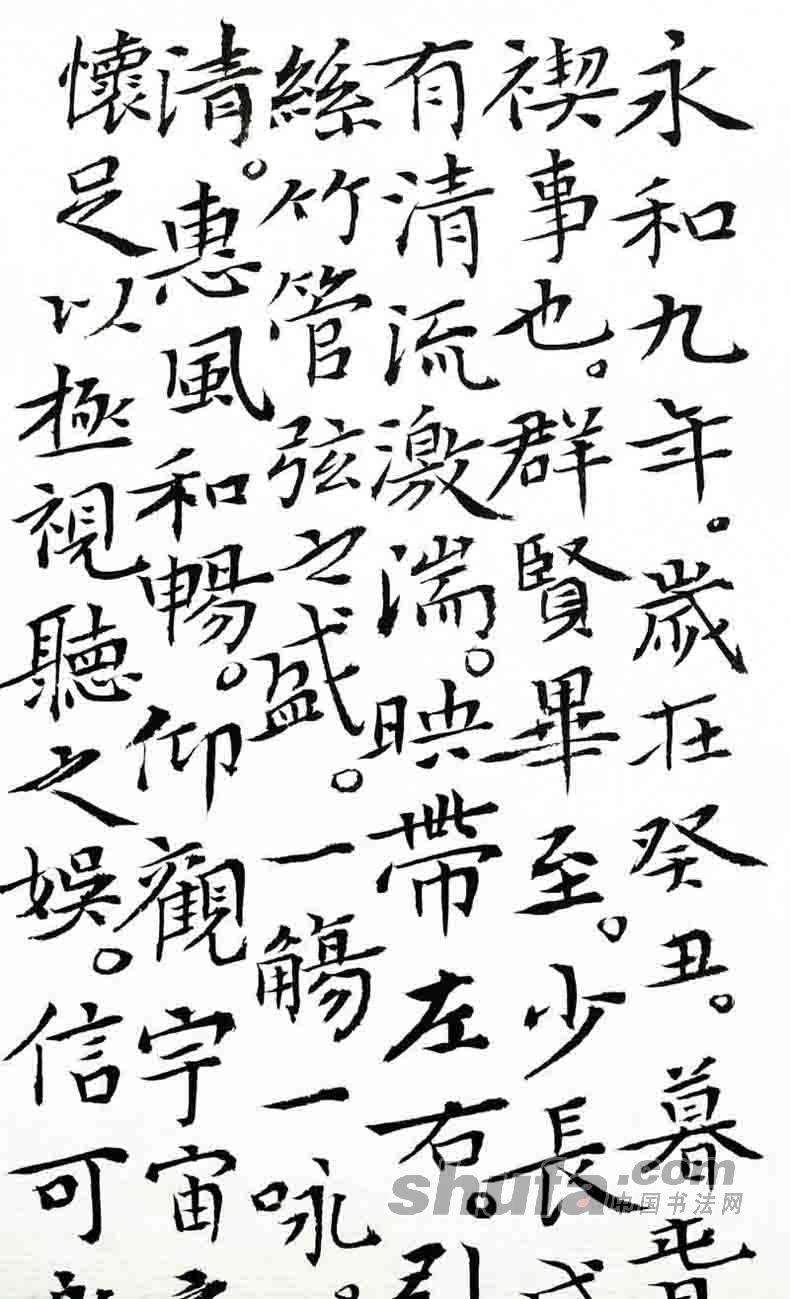 永和九年。歲在癸丑。暮春
禊事也。群賢畢至。少長咸
有清流激湍。映帶左右。引
絲竹管弦之盛。一觴一咏。
清。惠風和暢。仰觀宇宙之
懷足以極視聽之娛。信可
shufa.com
中国书法网